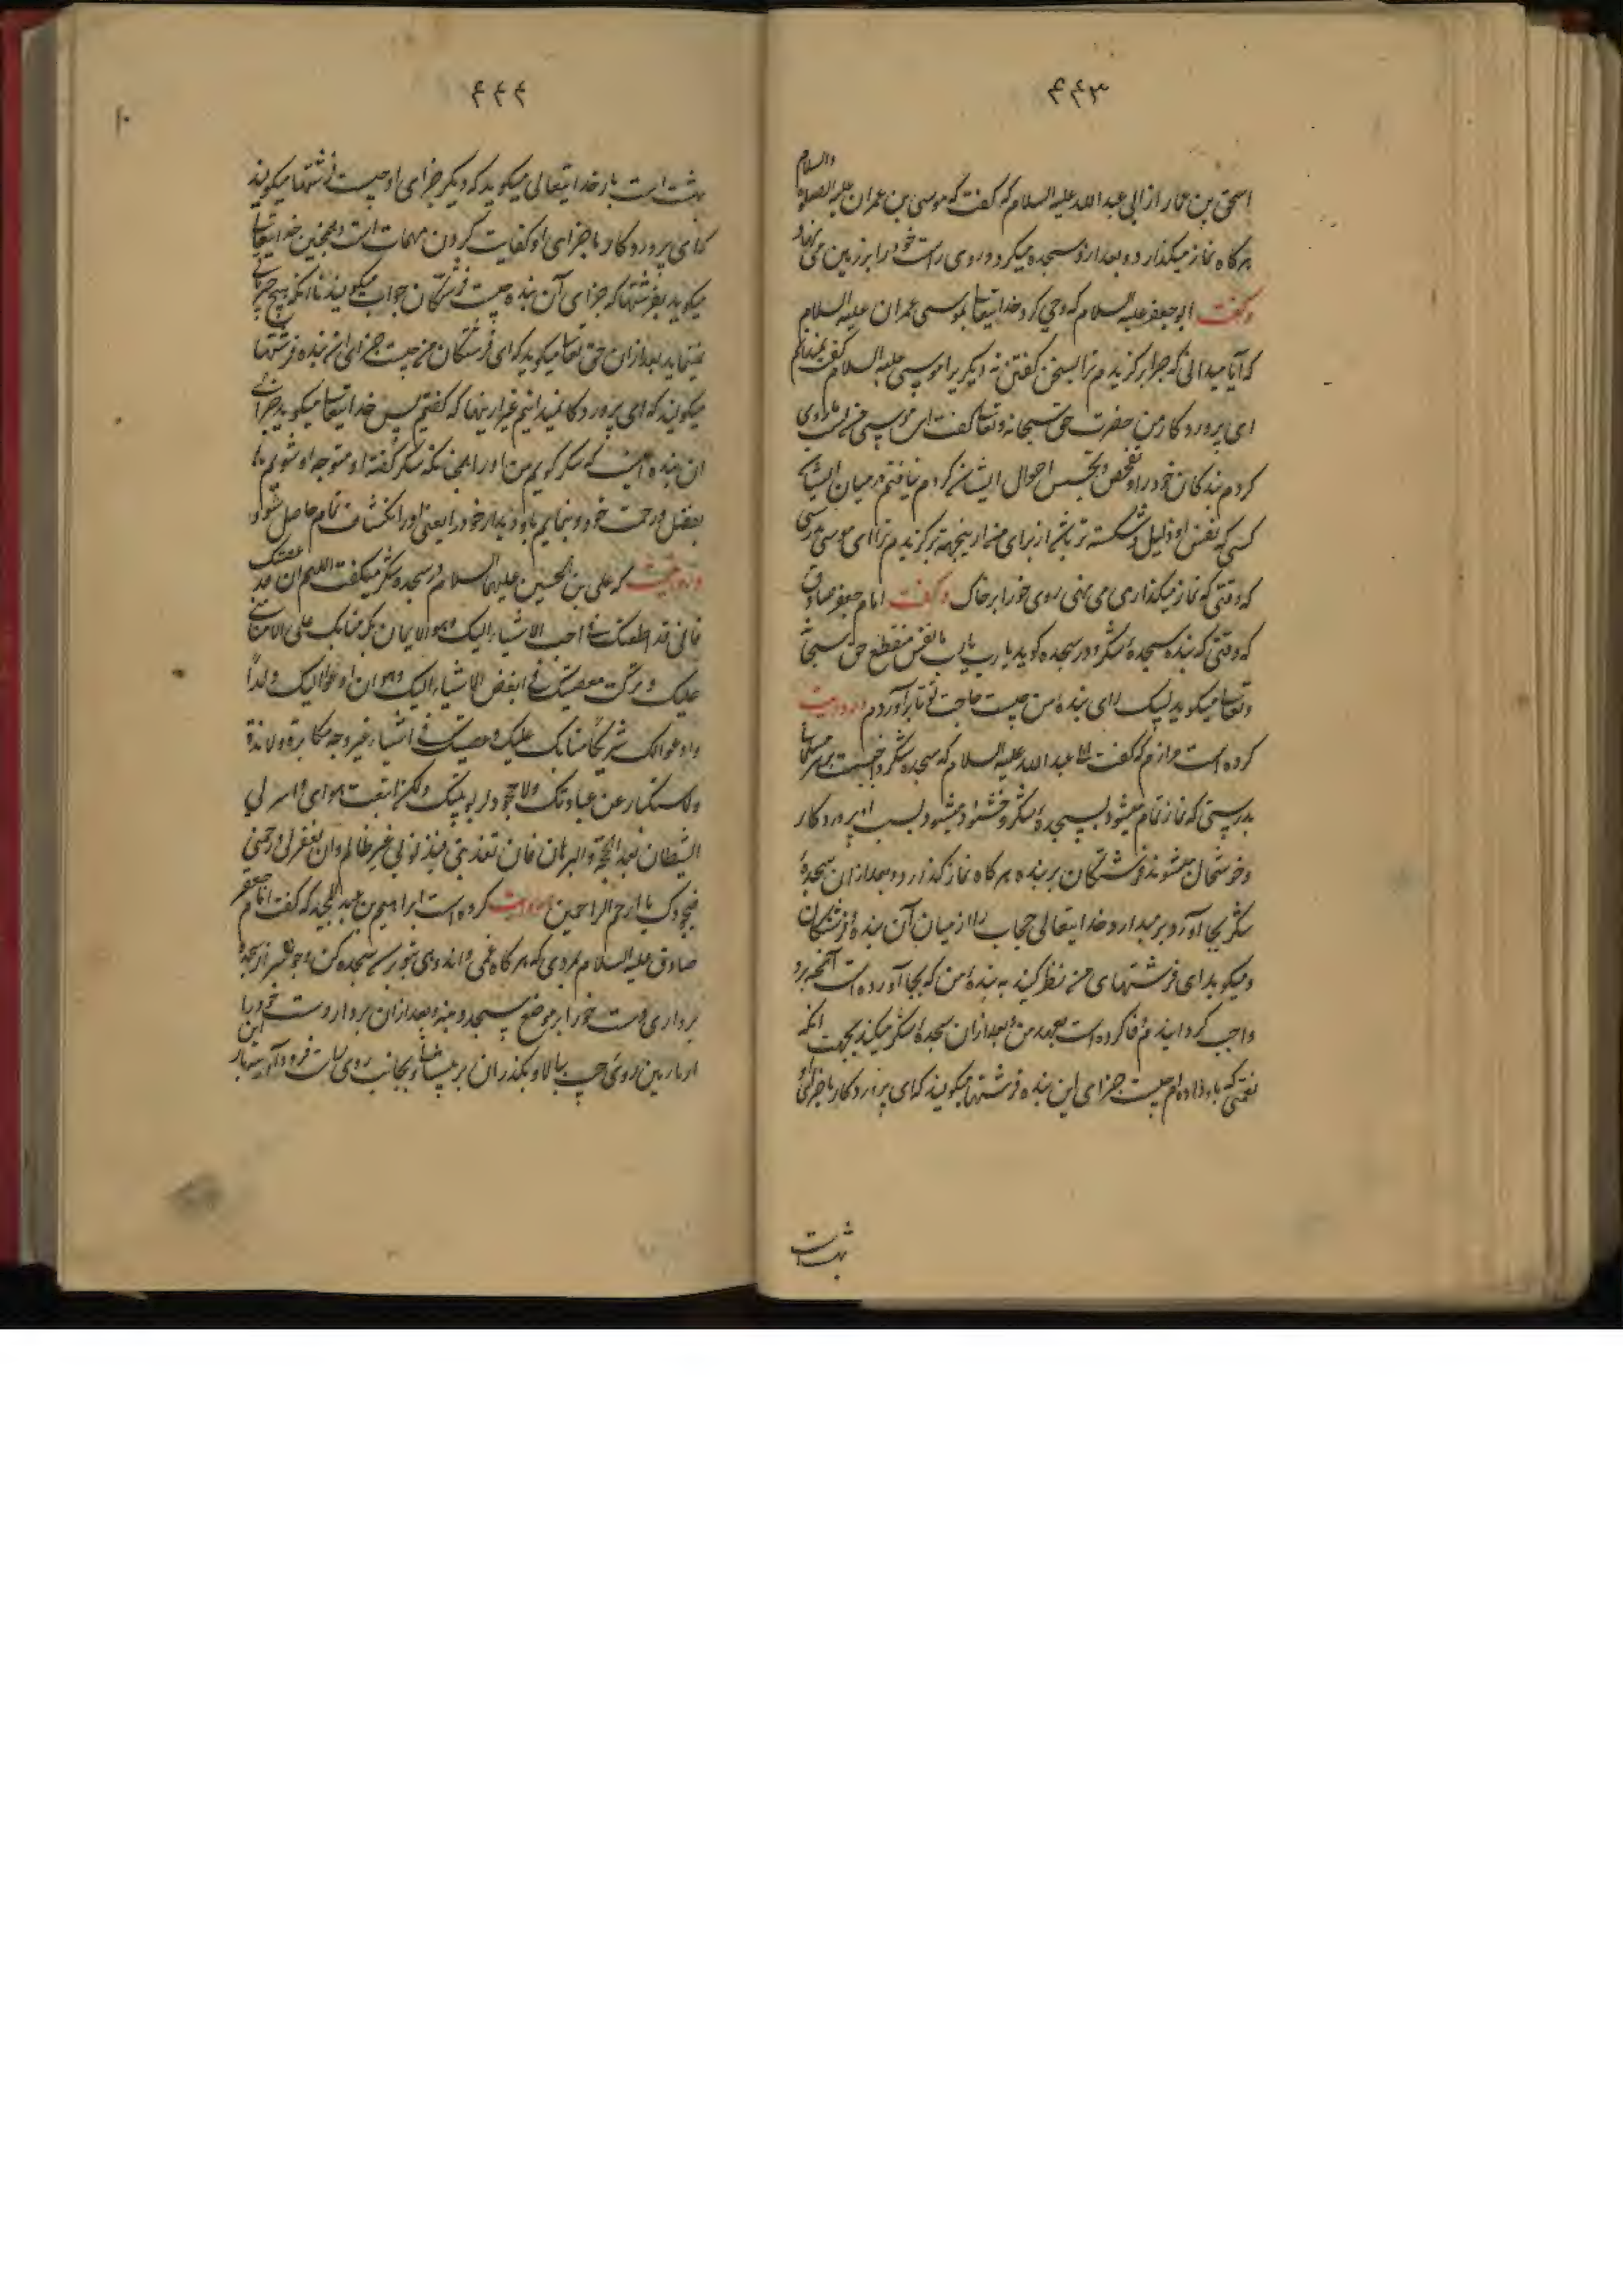 ۴۴۳
والسلام
اسحق بن عمار از ابی عبد الله علیه السلام که گفت که موسی بن عمران علیه الصلوة
هرگاه نماز میگذارد و بعد از او سجده میکرد و روی راست خود را بر زمین می نهاد
و گفت ابو جعفر علیه السلام که وحی کرد خدایتعالی بموسی عمران علیه السلام
که آیا میدانی که چرا برگزیدم ترا بسخن گفتن نه دیگریرا موسی علیه السلام گفت نمیدانم
ای پروردکار من حضرت حق سبحانه و تعالی گفت ای موسی من
کردم بندکان خود را و تفحص و تجسس احوال ایشان کردم نیافتم در میان ایشان
کسی که نفس او ذلیل و شکسته تر باشد از برای من از اینجهة برگزیدم ترا ای موسی
که وقتی که نماز میکذاری می نهی روی خود را بر خاک و گفت امام جعفر صادق
که وقتی که بنده سجدهٔ شکر و در سجده کوید یا رب یا رب تا نفس منقطع حق سبحانه
و تعالی میکوید لبیک ای بندهٔ من چیست حاجت تو تا برآوردم و روایت
کرده است مرازم که گفت ابا عبد الله علیه السلام که سجده شکر واجبست بر هر مسلمان
بدرستی که نماز تمام میشود بسجدهٔ شکر و خشنود میشود بسبب او پروردکار
و خوشحال میشوند فرشتکان بر بنده هرگاه نماز گذارد و بعد از ان سجدهٔ
شکر بجا آورد بر میدارد خدایتعالی حجاب را از میان آن بنده و فرشتکان
و میکوید ای فرشتهای من نظر کنید به بندهٔ من که بجا آورده است آنچه برو
واجب کردانیدم و وفا کرده است بعهد من و بعد از ان سجدهٔ شکر میکند بجهت آنکه
نعمتی که باو داده ام چیست جزای این بنده فرشتها میکویند که ای پروردکار ما جزای او
بهشت است
۴۴۴
۱۰
بهشت است باز خدایتعالی میکوید که دیکر جزای او چیست فرشتها میکویند
که ای پروردکار ما جزای او کفایت کردن مهمات است و همچنین خدایتعالی
میکوید بفرشتها که جزای آن بنده چیست فرشتکان جواب میکویند تا آنکه هیچ چیز باقی
نمیماند بعد از ان حق تعالی میکوید که ای فرشتکان من چیست جزای این بنده فرشتها
میکویند که ای پروردکار نمیدانیم غیر اینها که گفتیم پس خدایتعالی میکوید جزای
ان بنده اینست که شکر کویم من او را همچنانکه شکر گفته و متوجه او شویم
بفضل و رحمت خود و بنمایم باو دیدار خود را یعنی او را انکشاف تمام حاصل شود
و روایت که علی بن الحسین علیهما السلام در سجده شکر میکفت اللهم ان قد عصیتک
فانی قد اطعتک فی احب الاشیاء الیک و هو الایمان بک منا بک علی لا منا منی
علیک و ترکت معصیتک فی ابغض الاشیاء الیک و هو ان ادعو الیک ولدا
و ادعو لک شریکا منا بک علیک و عصیتک فی اشیاء غیر وجه مکابرة و لا معاندة
و لا استکبار عن عبادتک و لا جحود لربوبیتک و لکن اتبعت هوای و استزلنی
الشیطان بعد الحجة و البرهان فان تعذبنی فبذنوبی غیر ظالم و ان تغفر لی و ترحمنی
فبجودک یا ارحم الراحمین و روایت کرده است ابراهیم بن عبد الحمید که گفت امام جعفر
صادق علیه السلام بمردی که هرکاه غمی و اندوهی بتو رسد سجده کن و چون سر از سجده
برداری دست خود را بر موضع سجود بنه و بعد از ان بردار دست خود را
از روی چپ ببالا و بکذران بر پیشانی و بجانب روی راست فرود آر سه بار